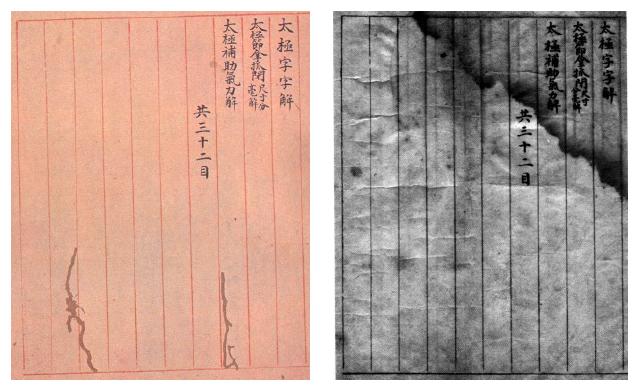 太極字字解
太極節拿抓閉尺寸分毫解
太極補助氣力解
共三十二目
太極字字解
太極節拿抓閉尺寸分毫解
太極補助氣力解
共三十二目